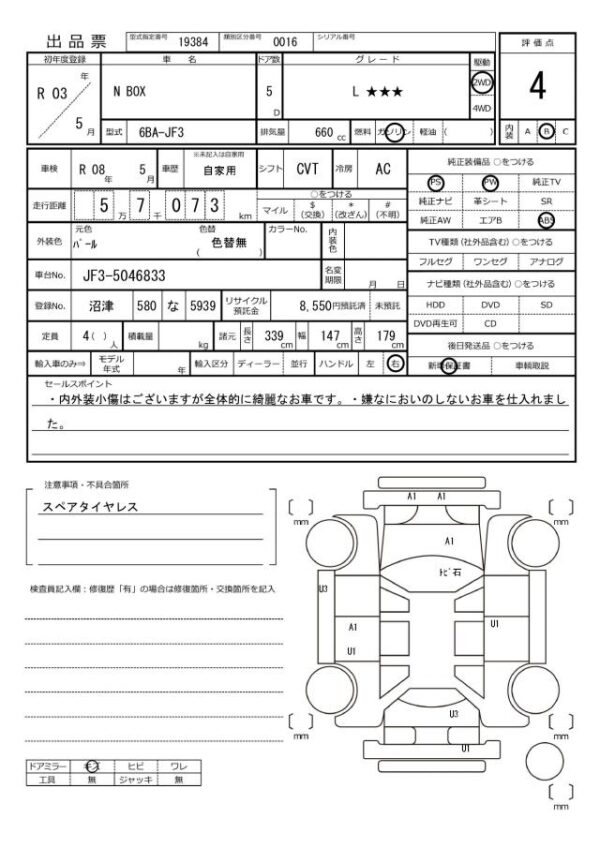 出品票 型式指定番号 19384 類別区分番号 0016 シリアル番号
初年度登録 車名 ドア数 グレード 駆動 評価点
R 03 年 N BOX 5 D L ★★★ 2WD 4
4WD
5 月 型式 6BA-JF3 排気量 660 cc 燃料 ガソリン 軽油 ( ) 内装 A B C
車検 R 08 年 5 月 車歴 ※未記入は自家用 自家用 シフト CVT 冷房 AC 純正装備品 ○をつける
PS PW 純正TV
走行距離 5 万 7 千 0 7 3 km ○をつける 純正ナビ 革シート SR
マイル $(交換) *(改ざん) #(不明) 純正AW エアB ABS
外装色 元色 パール 色替 色替無 ( ) カラーNo. 内装色 TV種類 (社外品含む) ○をつける
フルセグ ワンセグ アナログ
車台No. JF3-5046833 名変期限 月 日 ナビ種類 (社外品含む) ○をつける
登録No. 沼津 580 な 5939 リサイクル預託金 8,550円預託済 未預託 HDD DVD SD
DVD再生可 CD
定員 4 ( ) 人 積載量 kg 諸元 長さ 339 cm 幅 147 cm 高さ 179 cm 後日発送品 ○をつける
輸入車のみ⇒ モデル年式 年 輸入区分 ディーラー 並行 ハンドル 左 右 新車保証書 車輌取説
セールスポイント
・内外装小傷はございますが全体的に綺麗なお車です。・嫌なにおいのしないお車を仕入れまし
た。
注意事項・不具合箇所
スペアタイヤレス
検査員記入欄：修復歴「有」の場合は修復箇所・交換箇所を記入
ドアミラー キズ ヒビ ワレ
工具 無 ジャッキ 無
A1 A1
mm mm
A1
ﾄﾋﾞ石
U3
A1 U1
U1
U3
mm mm
U1
mm